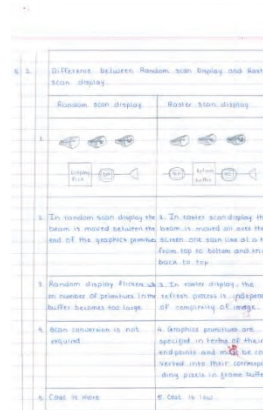 Difference between Random scan Display and Rast
scan display.
Random scan display
Raster scan display.
1.
2. In random scan display the
beam is moved between the
end of the graphics primitive
2. In raster scan display th
beam is moved all over the
screen one scan line at a t
from top to bottom and
back to top.
3. Random display flickers
number of primitives in the
buffer becomes too large.
3. In raster display, the
refresh process is indepen
of complexity of image.
4. Scan conversion is not
required.
4. Graphics primitives are
specified in terms of their
endpoints and must be co
verted into their correspo
ding pixels in frame buffer
5. Cost is more
5. Cost is low.